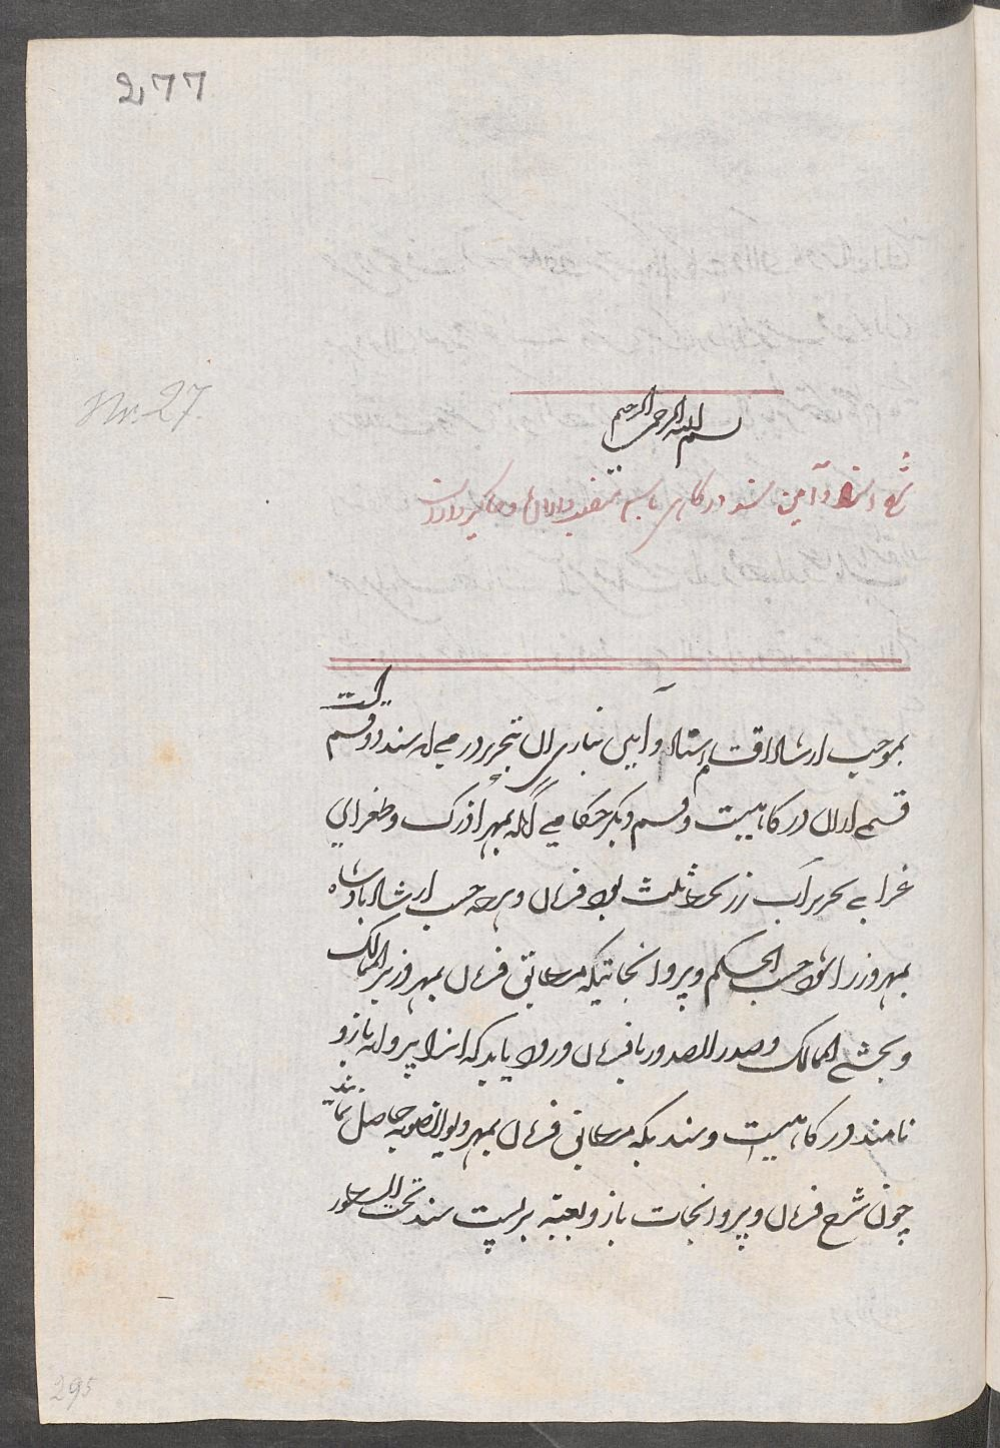 277
Nr. 27
بسم الله الرحمن الرحیم
شرح اسناد و آئین سند درگاهی باسم منصبداران و جاگیرداران
بموجب ارشاد اقسام اسناد و آئین نگارش آن بتحریر در می آید سند دو قسم است
قسمی ازان درگاهیست و قسم دیگر حکامی آنکه بمهر اوزک و طغرای
غرا بی تحریر آب زر بخط ثلث بود فرمان و هرچه حسب ارشاد پادشاه
بمهر وزرا شود حسب الحکم و پروانجاتیکه مطابق فرمان بمهر وزیر الممالک
و بخشی الممالک و صدر الصدور با فرمان ورود یابد که انرا پروانه بازو
نامند درگاهیست و سندیکه مطابق فرمان بمهر دیوان صوبه حاصل نمایند
چون شرح فرمان و پروانجات بازو بعینه بر پشت سند تحت السطور
295